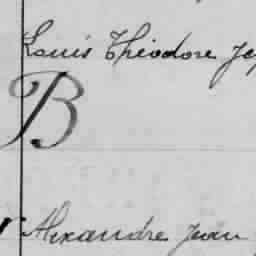 Louis Théodore
B
Alexandre Jean